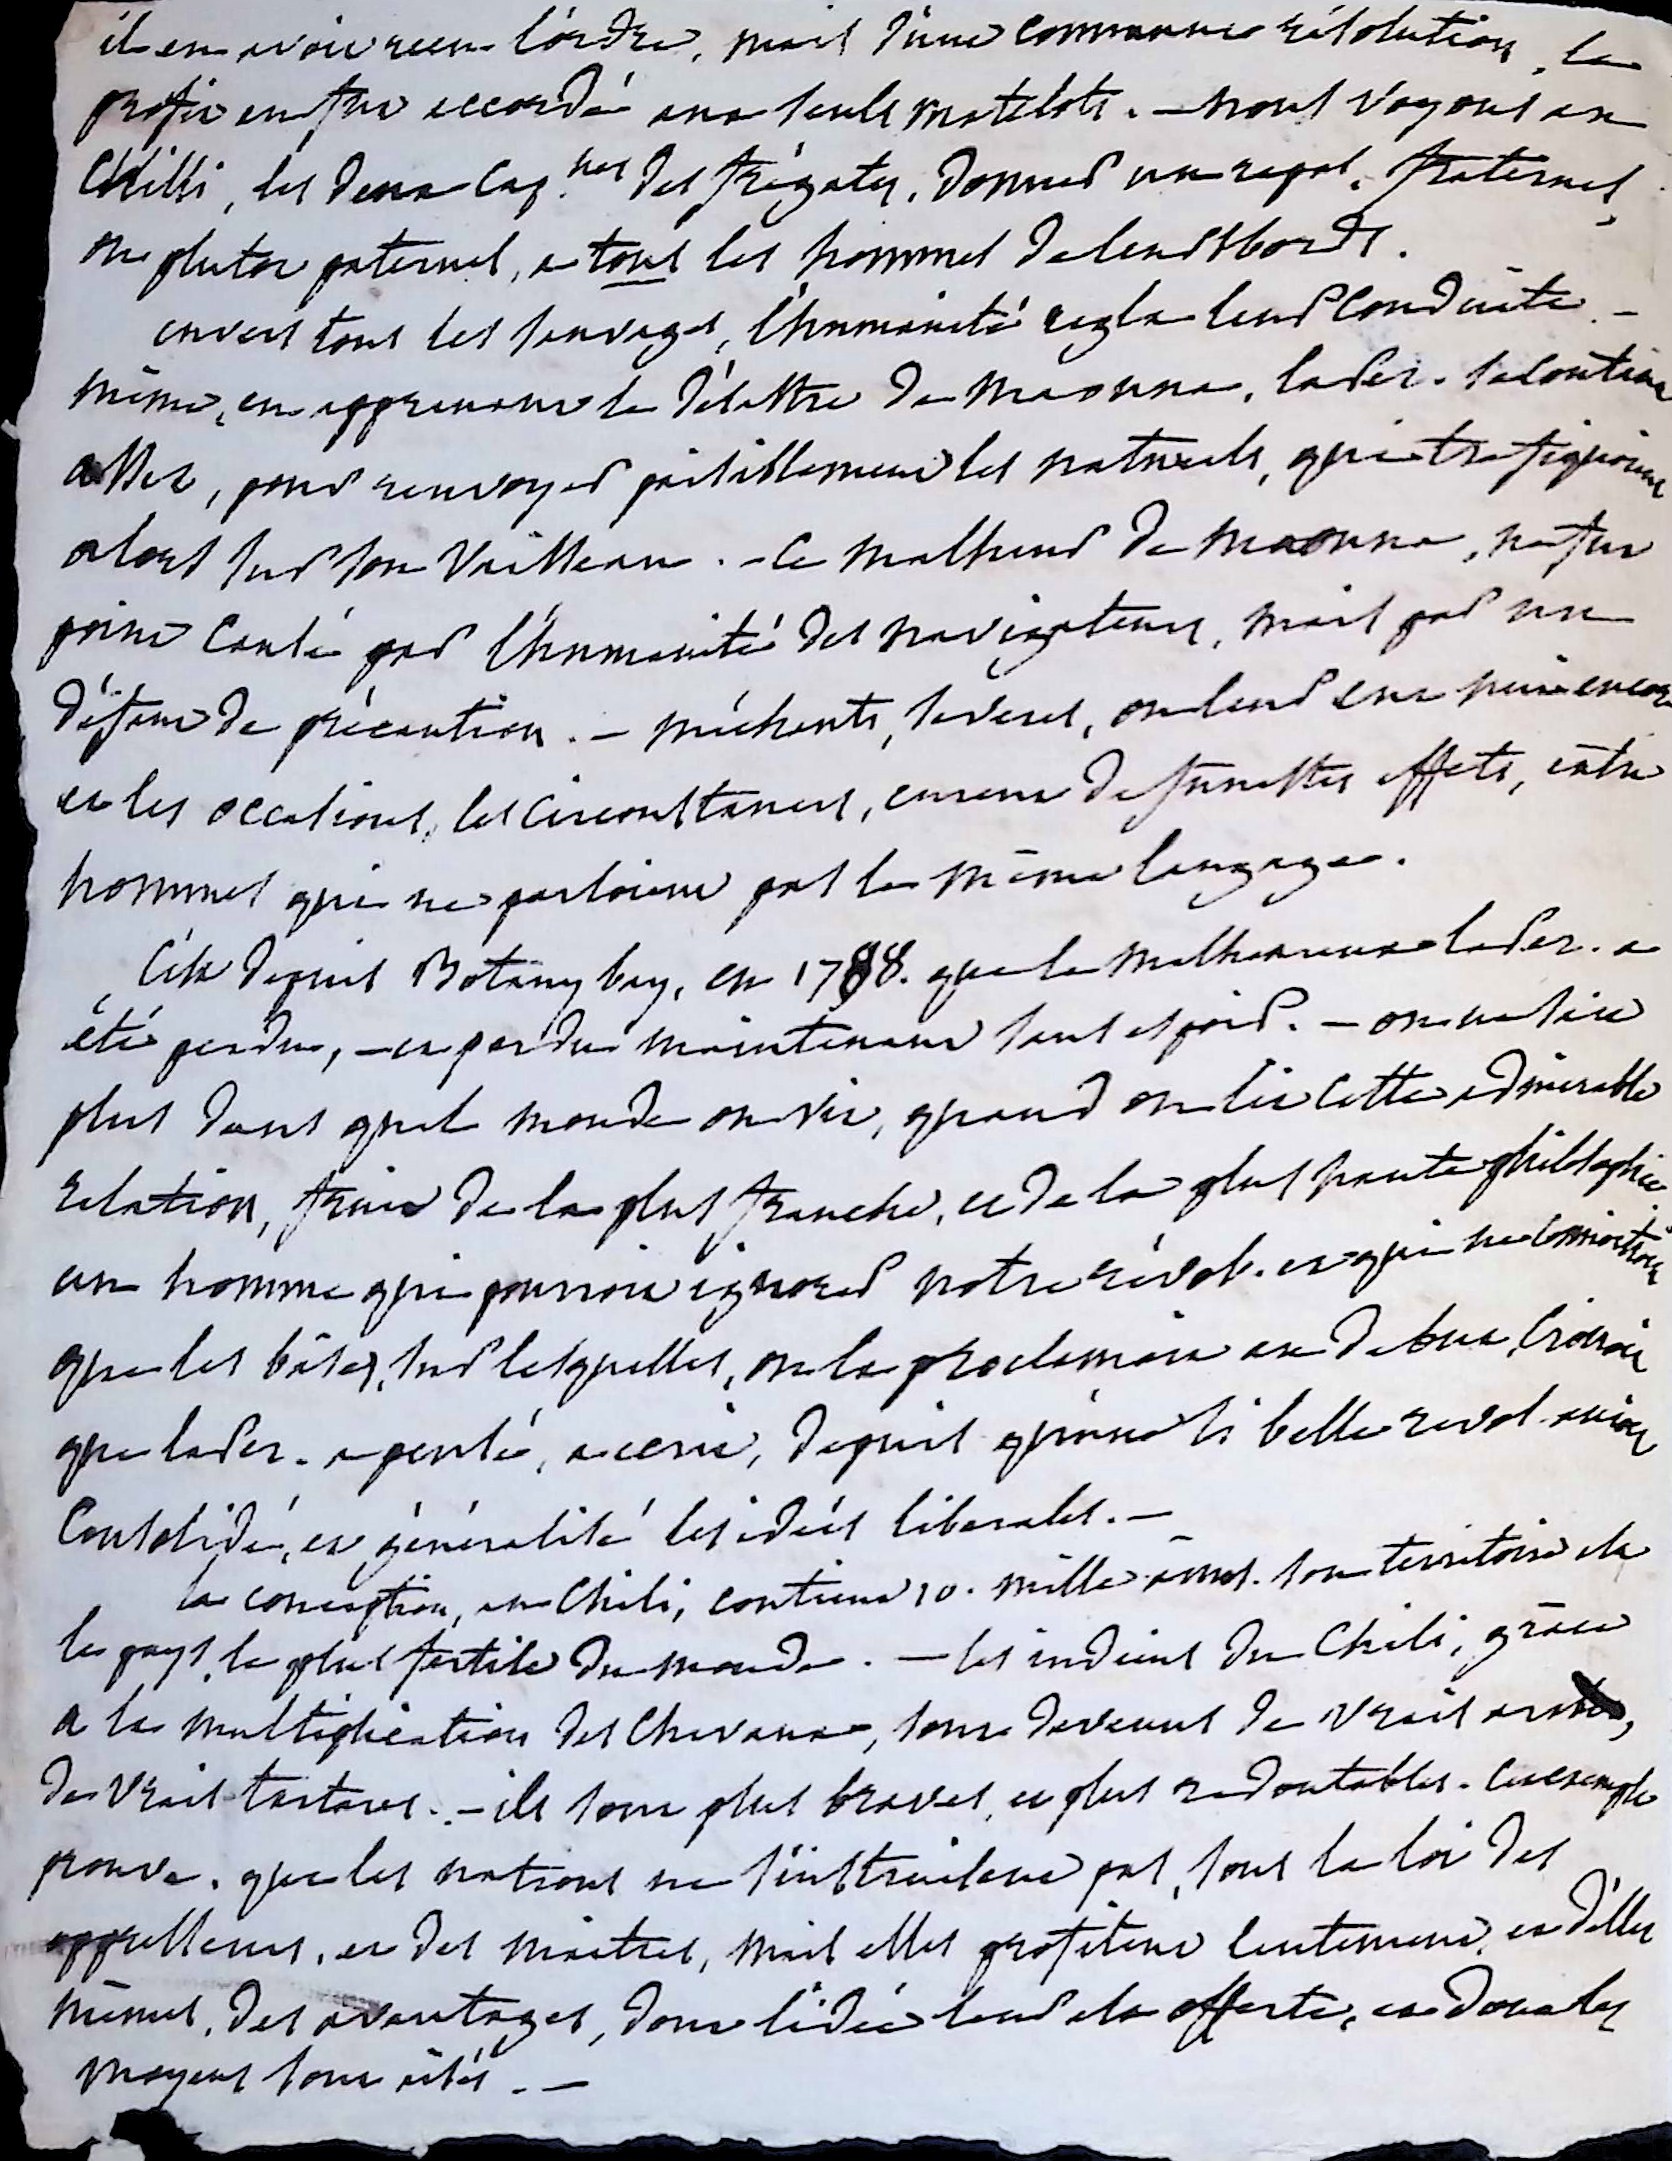 il en avoit reçu l'ordre, mais d'une commune résolution, le
profit en fut accordé aux seuls matelots. - nous voyons au
Chilli, les deux Cap.nes des frégates, donner un repas, fraternel,
ou plutot paternel, a tous les hommes de leurs bords.
envers tous les sauvages, l'humanité regla leur conduite. -
même, en apprenant le désastre de maouna, laper. se contint
assez, pour renvoyer paisiblement les naturels, qui trafiquoient
alors sur son vaisseau. - Ce malheur de maouna, ne fut
point causé par l'humanité des navigateurs, mais par un
défaut de précaution. - méchants, severes, on leur eut nui encore
et les occasions, les circonstances, eurent de funestes effets, entre
hommes qui ne parloient pas le même langage.
C'est depuis Botany bay, en 1788. que le malheureux laper. a
été perdu, - et perdu maintenant sans espoir. - on ne sait
plus dans quel monde on vit, quand on lit cette admirable
relation, fruit de la plus franche, et de la plus haute philosophie
un homme qui pourroit ignorer notre révol. et qui ne connoitroit
que les bâses, sur lesquelles, on la proclamoit au debut, croiroit
que laper. a pensé, a écrit, depuis qu'une si belle revol. auroit
consolidé, et généralisé les idées liberales. -
la conception, au Chili, contient 10. mille âmes. son territoire est
le pays, le plus fertile du monde. - les indiens du Chili, grâce
a la multiplication des chevaux, sont devenus de vrais arabes,
de vrais tartares. - ils sont plus braves, et plus redoutables. cet exemple
prouve, que les nations ne s'instruisent pas, sous la loi des
oppresseurs, et des maitres, mais elles profitent lentement, et d'elles
mêmes, des avantages, dont l'idée leur est offerte, et dont les
moyens sont aisés. -